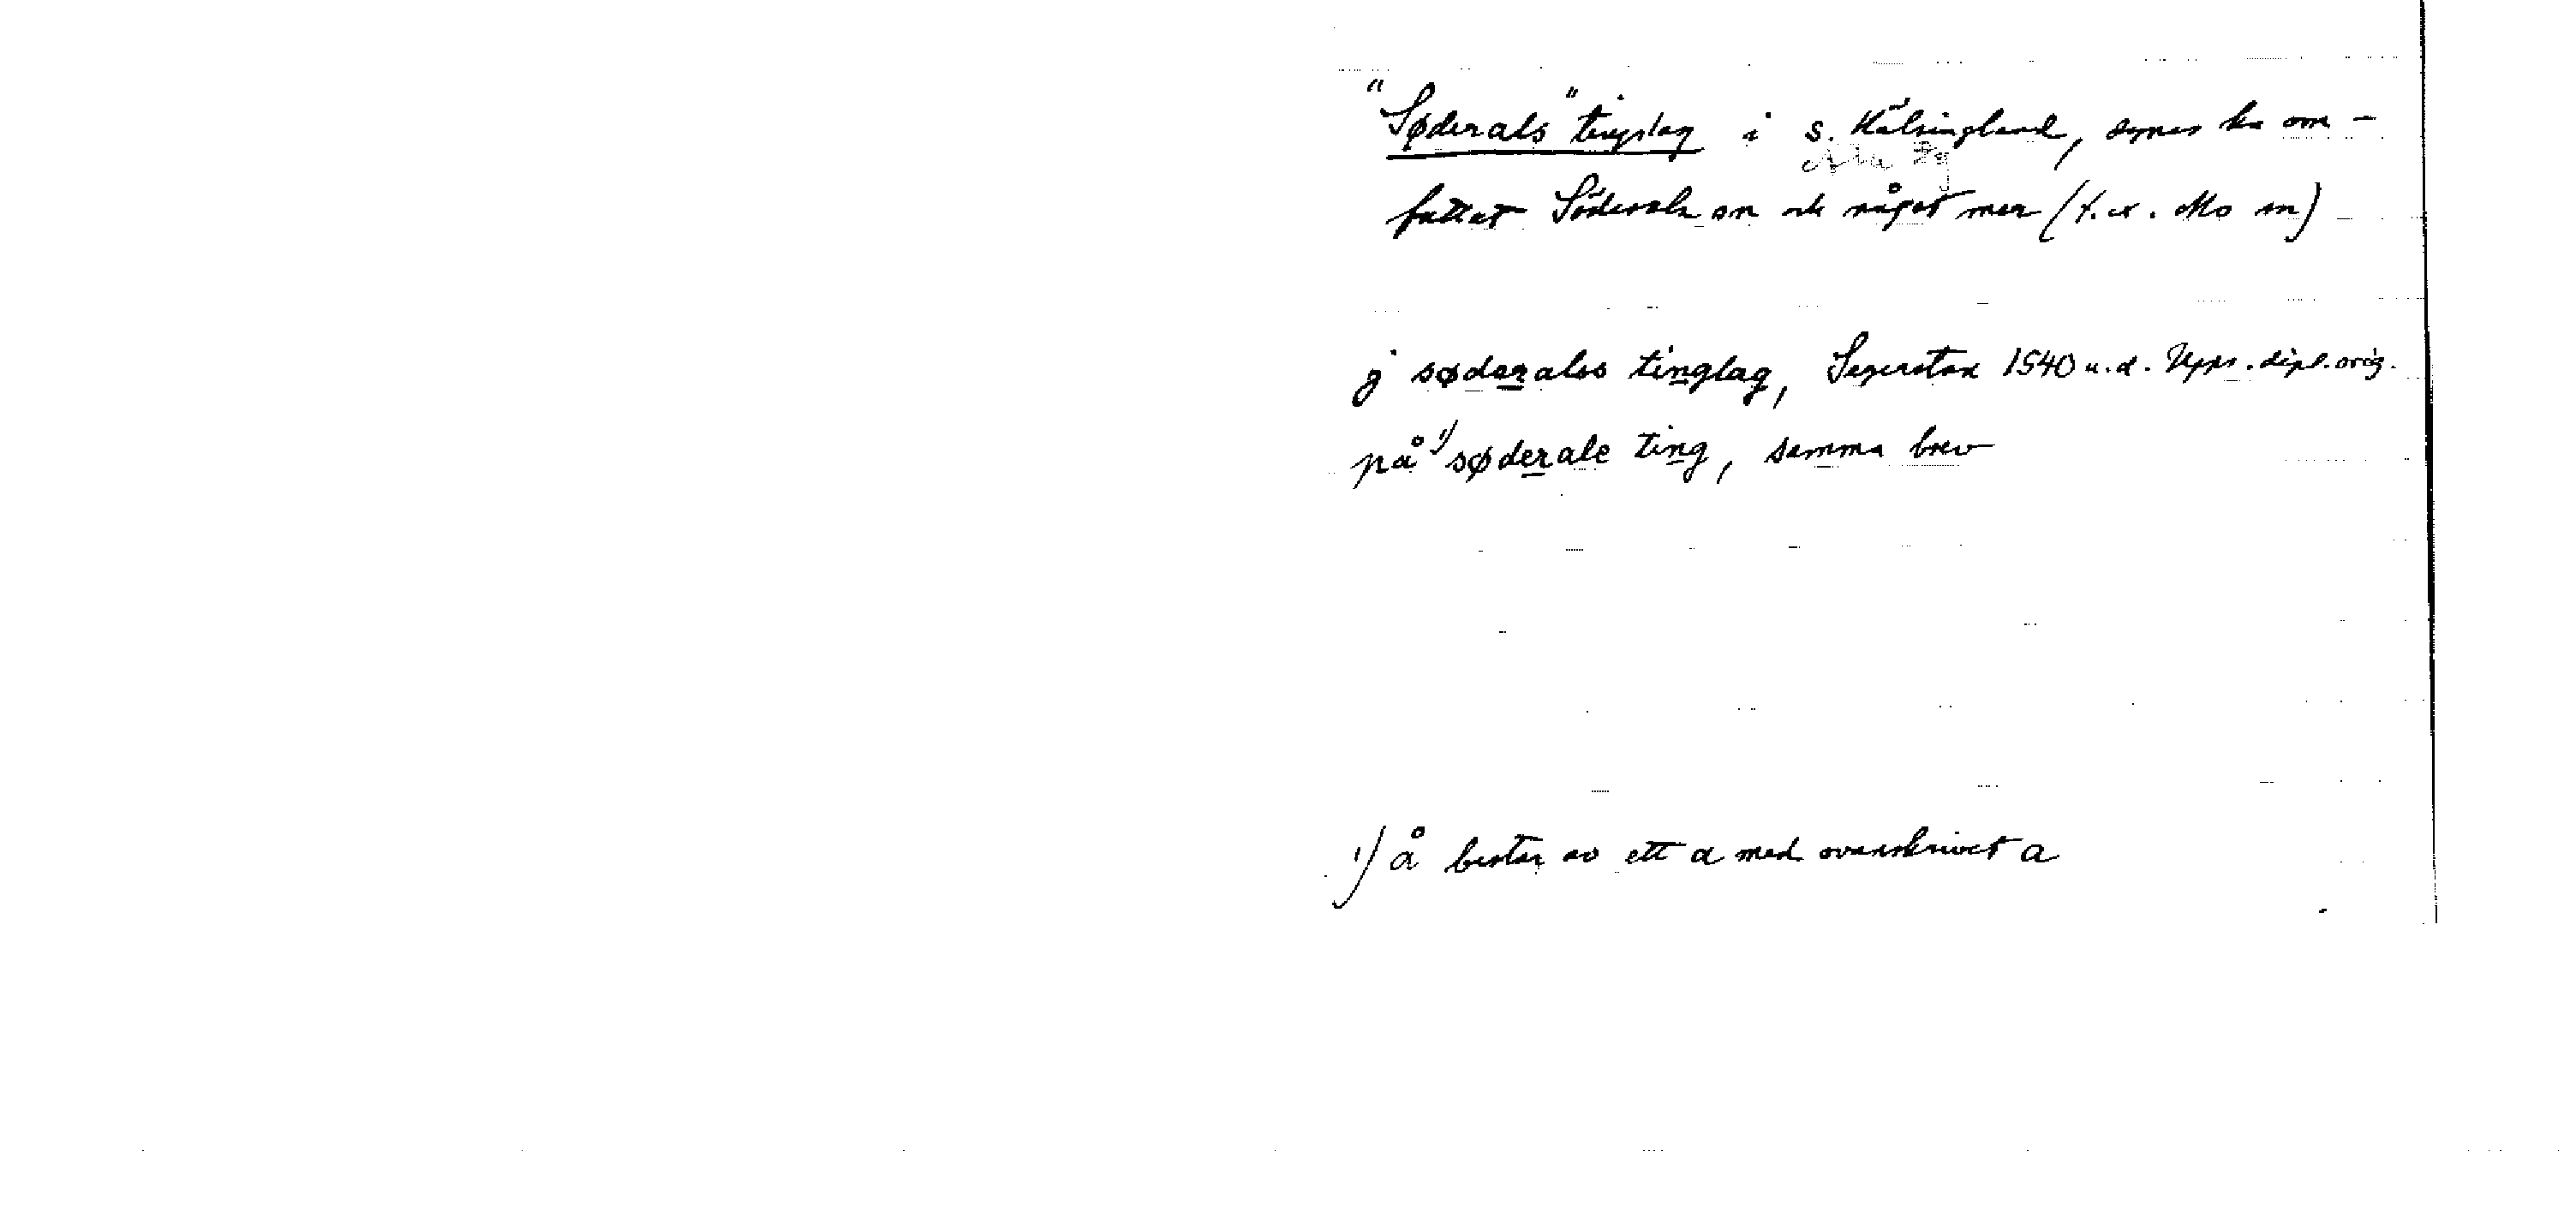 "Søderals" tingslag i s. Hälsingland, synes ha om-
Ala
fattat Söderala sn och något mer (t.ex. Mo sn)
j søderalss tinglag, Segersta 1540 u.d. Upps. dipl. orig.
på ¹⁾ søderale ting, samma brev
¹⁾ å består av ett a med ovanskrivet a